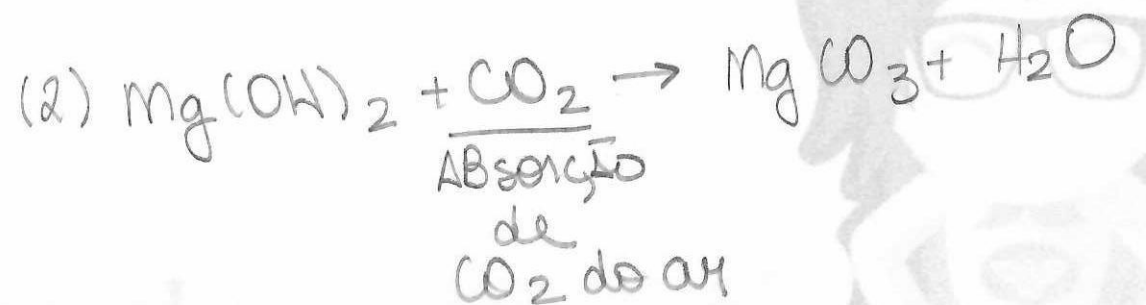 (2) Mg(OH)2 + CO2 → MgCO3 + H2O
ABsorção
de
CO2 do ar